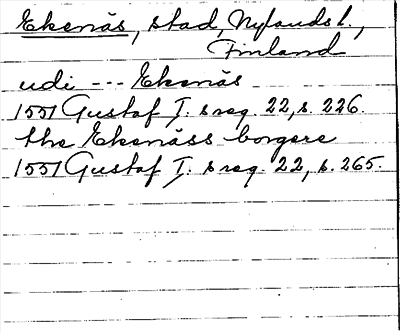 Ekenäs, stad, Nylands l.,
Finland
udi --- Ekenäs
1551 Gustaf I. s reg. 22, s. 226.
the Ekenäss borgere
1551 Gustaf I. s reg. 22, s. 265.